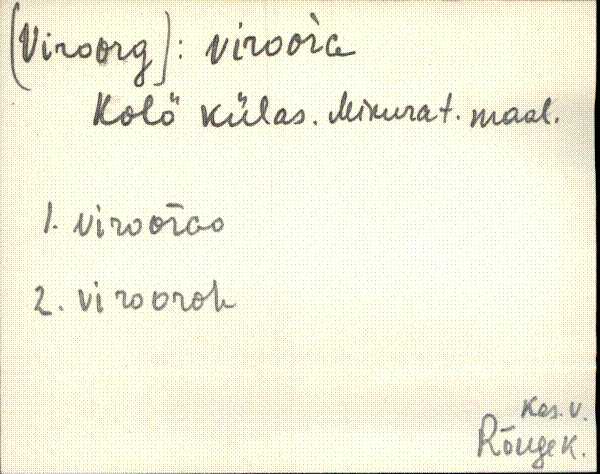 [Viroorg]: viroora
Kolö külas. Mikurat. maal.
1. viroorao
2. viroorok
Kas. v.
Rõuge k.